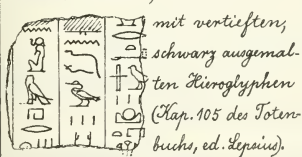 mit vertieften,
schwarz ausgemal-
ten Hieroglyphen
(Kap. 105 des Toten-
buchs, ed. Lepsius).